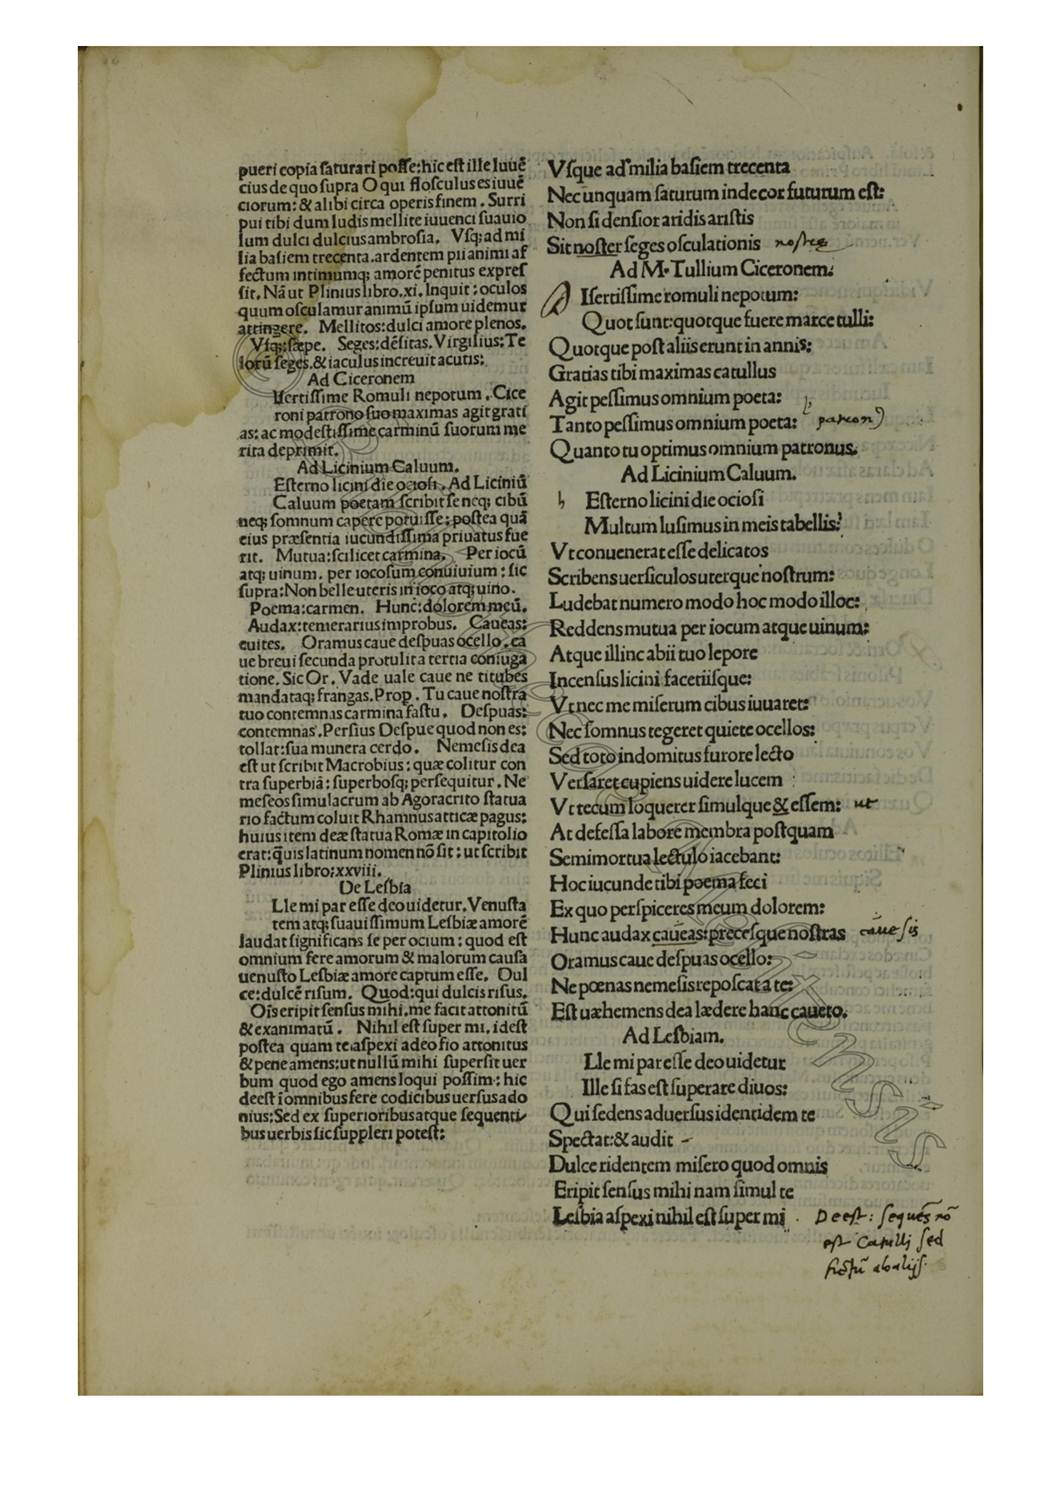 pueri copia saturari posse:hic est ille Iuuē
cius de quo supra O qui flosculus es iuuē
ciorum: & alibi circa operis finem. Surri
pui tibi dum ludis mellite iuuenci suauio
lum dulci dulcius ambrosia. Vsq; ad mi
lia basiem trecenta.ardentem pii animi af
fectum intimumq; amorē penitus expres
sit. Nā ut Plinius libro.xi. Inquit: oculos
quum osculamur animū ipsum uidemur
attingere. Mellitos:dulci amore plenos.
Vsq;:sæpe. Seges:dēsitas. Virgilius: Te
lorū seges.& iaculus increuit acutis:
Ad Ciceronem
Isertissime Romuli nepotum. Cice
roni patrono suo maximas agit grati
as: ac modestissime carminū suorum me
rita deprimit.
Ad Licinium Caluum.
Esterno licini die ociosi. Ad Liciniū
Caluum poetam scribit se neq; cibū
neq; somnum capere potuisse: postea quā
eius præsentia iucundissima priuatus fue
rit. Mutua:scilicet carmina. Per iocū
atq; uinum. per iocosum conuiuium: sic
supra:Non belle uteris in ioco atq; uino.
Poema:carmen. Hunc:dolorem meū.
Audax:temerarius improbus. Caueas:
euites. Oramus caue despuas ocello.ca
ue breui secunda protulit a tertia coniuga
tione. Sic Or. Vade uale caue ne titubes
mandataq; frangas.Prop. Tu caue nostra
tuo contemnas carmina fastu. Despuas:
contemnas. Persius Despue quod non es:
tollat:sua munera cerdo. Nemesis dea
est ut scribit Macrobius: quæ colitur con
tra superbiā: superbosq; persequitur. Ne
meseos simulacrum ab Agoracrito statua
rio factum coluit Rhamnus atticæ pagus:
huius item deæ statua Romæ in capitolio
erat: q̄uis latinum nomen nō sit: ut scribit
Plinius libro:xxviii.
De Lesbia
Lle mi par esse deo uidetur. Venusta
tem atq; suauissimum Lesbiæ amorē
laudat significans se per ocium: quod est
omnium fere amorum & malorum causa
uenusto Lesbiæ amore captum esse. Dul
ce:dulcē risum. Quod:qui dulcis risus.
Oīs eripit sensus mihi.me facit attonitū
& exanimatū. Nihil est super mi.idest
postea quam te aspexi adeo fio attonitus
& pene amens:ut nullū mihi supersit uer
bum quod ego amens loqui possim: hic
deest ī omnibus fere codicibus uersus ado
nius:Sed ex superioribus atque sequenti
bus uerbis sic suppleri potest:
Vsque ad milia basiem trecenta
Nec unquam saturum inde cor futurum est:
Non si densior aridis aristis
Sit noster seges osculationis nostrę
Ad M. Tullium Ciceronem.
D Isertissime romuli nepotum:
Quot sunt:quotque fuere marce tulli:
Quotque post aliis erunt in annis:
Gratias tibi maximas catullus
Agit pessimus omnium poeta:
Tanto pessimus omnium poeta: patron9
Quanto tu optimus omnium patronus.
Ad Licinium Caluum.
h Esterno licini die ociosi
Multum lusimus in meis tabellis:
Vt conuenerat esse delicatos
Scribens uersiculos uterque nostrum:
Ludebat numero modo hoc modo illoc:
Reddens mutua per iocum atque uinum:
Atque illinc abii tuo lepore
Incensus licini facetiisque:
Vt nec me miserum cibus iuuaret:
Nec somnus tegeret quiete ocellos:
Sed toto indomitus furore lecto
Versaret cupiens uidere lucem
Vt tecum loquerer simulque & essem: ut
At defessa labore membra postquam
Semimortua lectulo iacebant:
Hoc iucunde tibi poema feci
Ex quo perspiceres meum dolorem:
Hunc audax caueas:precesque nostras caue sis
Oramus caue despuas ocello:
Ne pœnas nemesis reposcat a te:
Est uæhemens dea lædere hanc caueto.
Ad Lesbiam.
Lle mi par esse deo uidetur
Ille si fas est superare diuos:
Qui sedens aduersus identidem te
Spectat:& audit
Dulce ridentem misero quod omnis
Eripit sensus mihi nam simul te
Lesbia aspexi nihil est super mi
Deest: sequēs nō
est Catulli sed
fictū ab alijs.